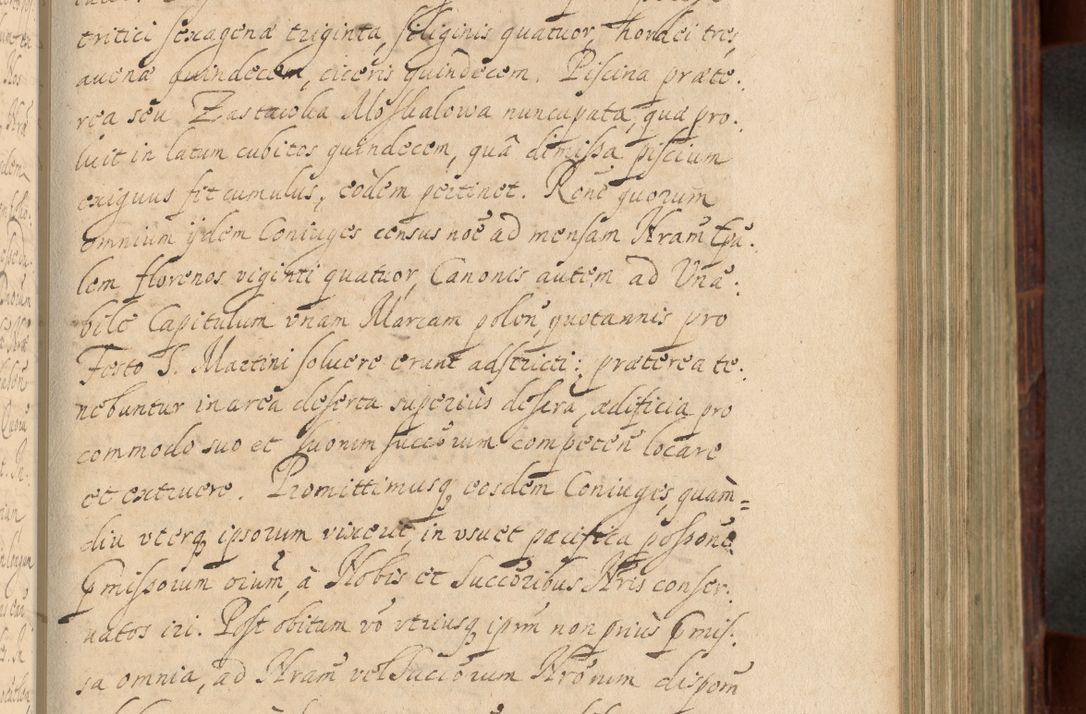 tritici sexagenæ triginta, siliginis quatuor, hordei tres,
auenæ quindecem, ciceris quindecem. Piscina præte:
rea seu Zastawka Moskalowa nuncupata, quæ pro:
luit in latum cubitos quindecem, quâ dimissa piscium
exiguus fit cumulus, eodem pertinet. Rone quorum
omnium ijdem Coniuges census noe ad mensam Nram Epa:
lem florenos viginti quatuor, Canonis autem ad Vnã:
bile Capitulum vnam Marcam polon, quotannis pro
Festo S. Martini soluere erunt adstricti: præterea te:
nebuntur in area deserta superius descra, ædificia pro
commodo suo et suorum succorum competen locare
et extruere. Promittimusq, eosdem Coniuges, quam=
diu vterq, ipsorum vixerit, in vsu et pacifica possone
pmissorum oium, à Nobis et Succoribus Nris conser:
uatos iri. Post obitum vo vtriusq, ipm non prius pmis:
sa omnia, ad Nram vel Succorum Nrorum dispom